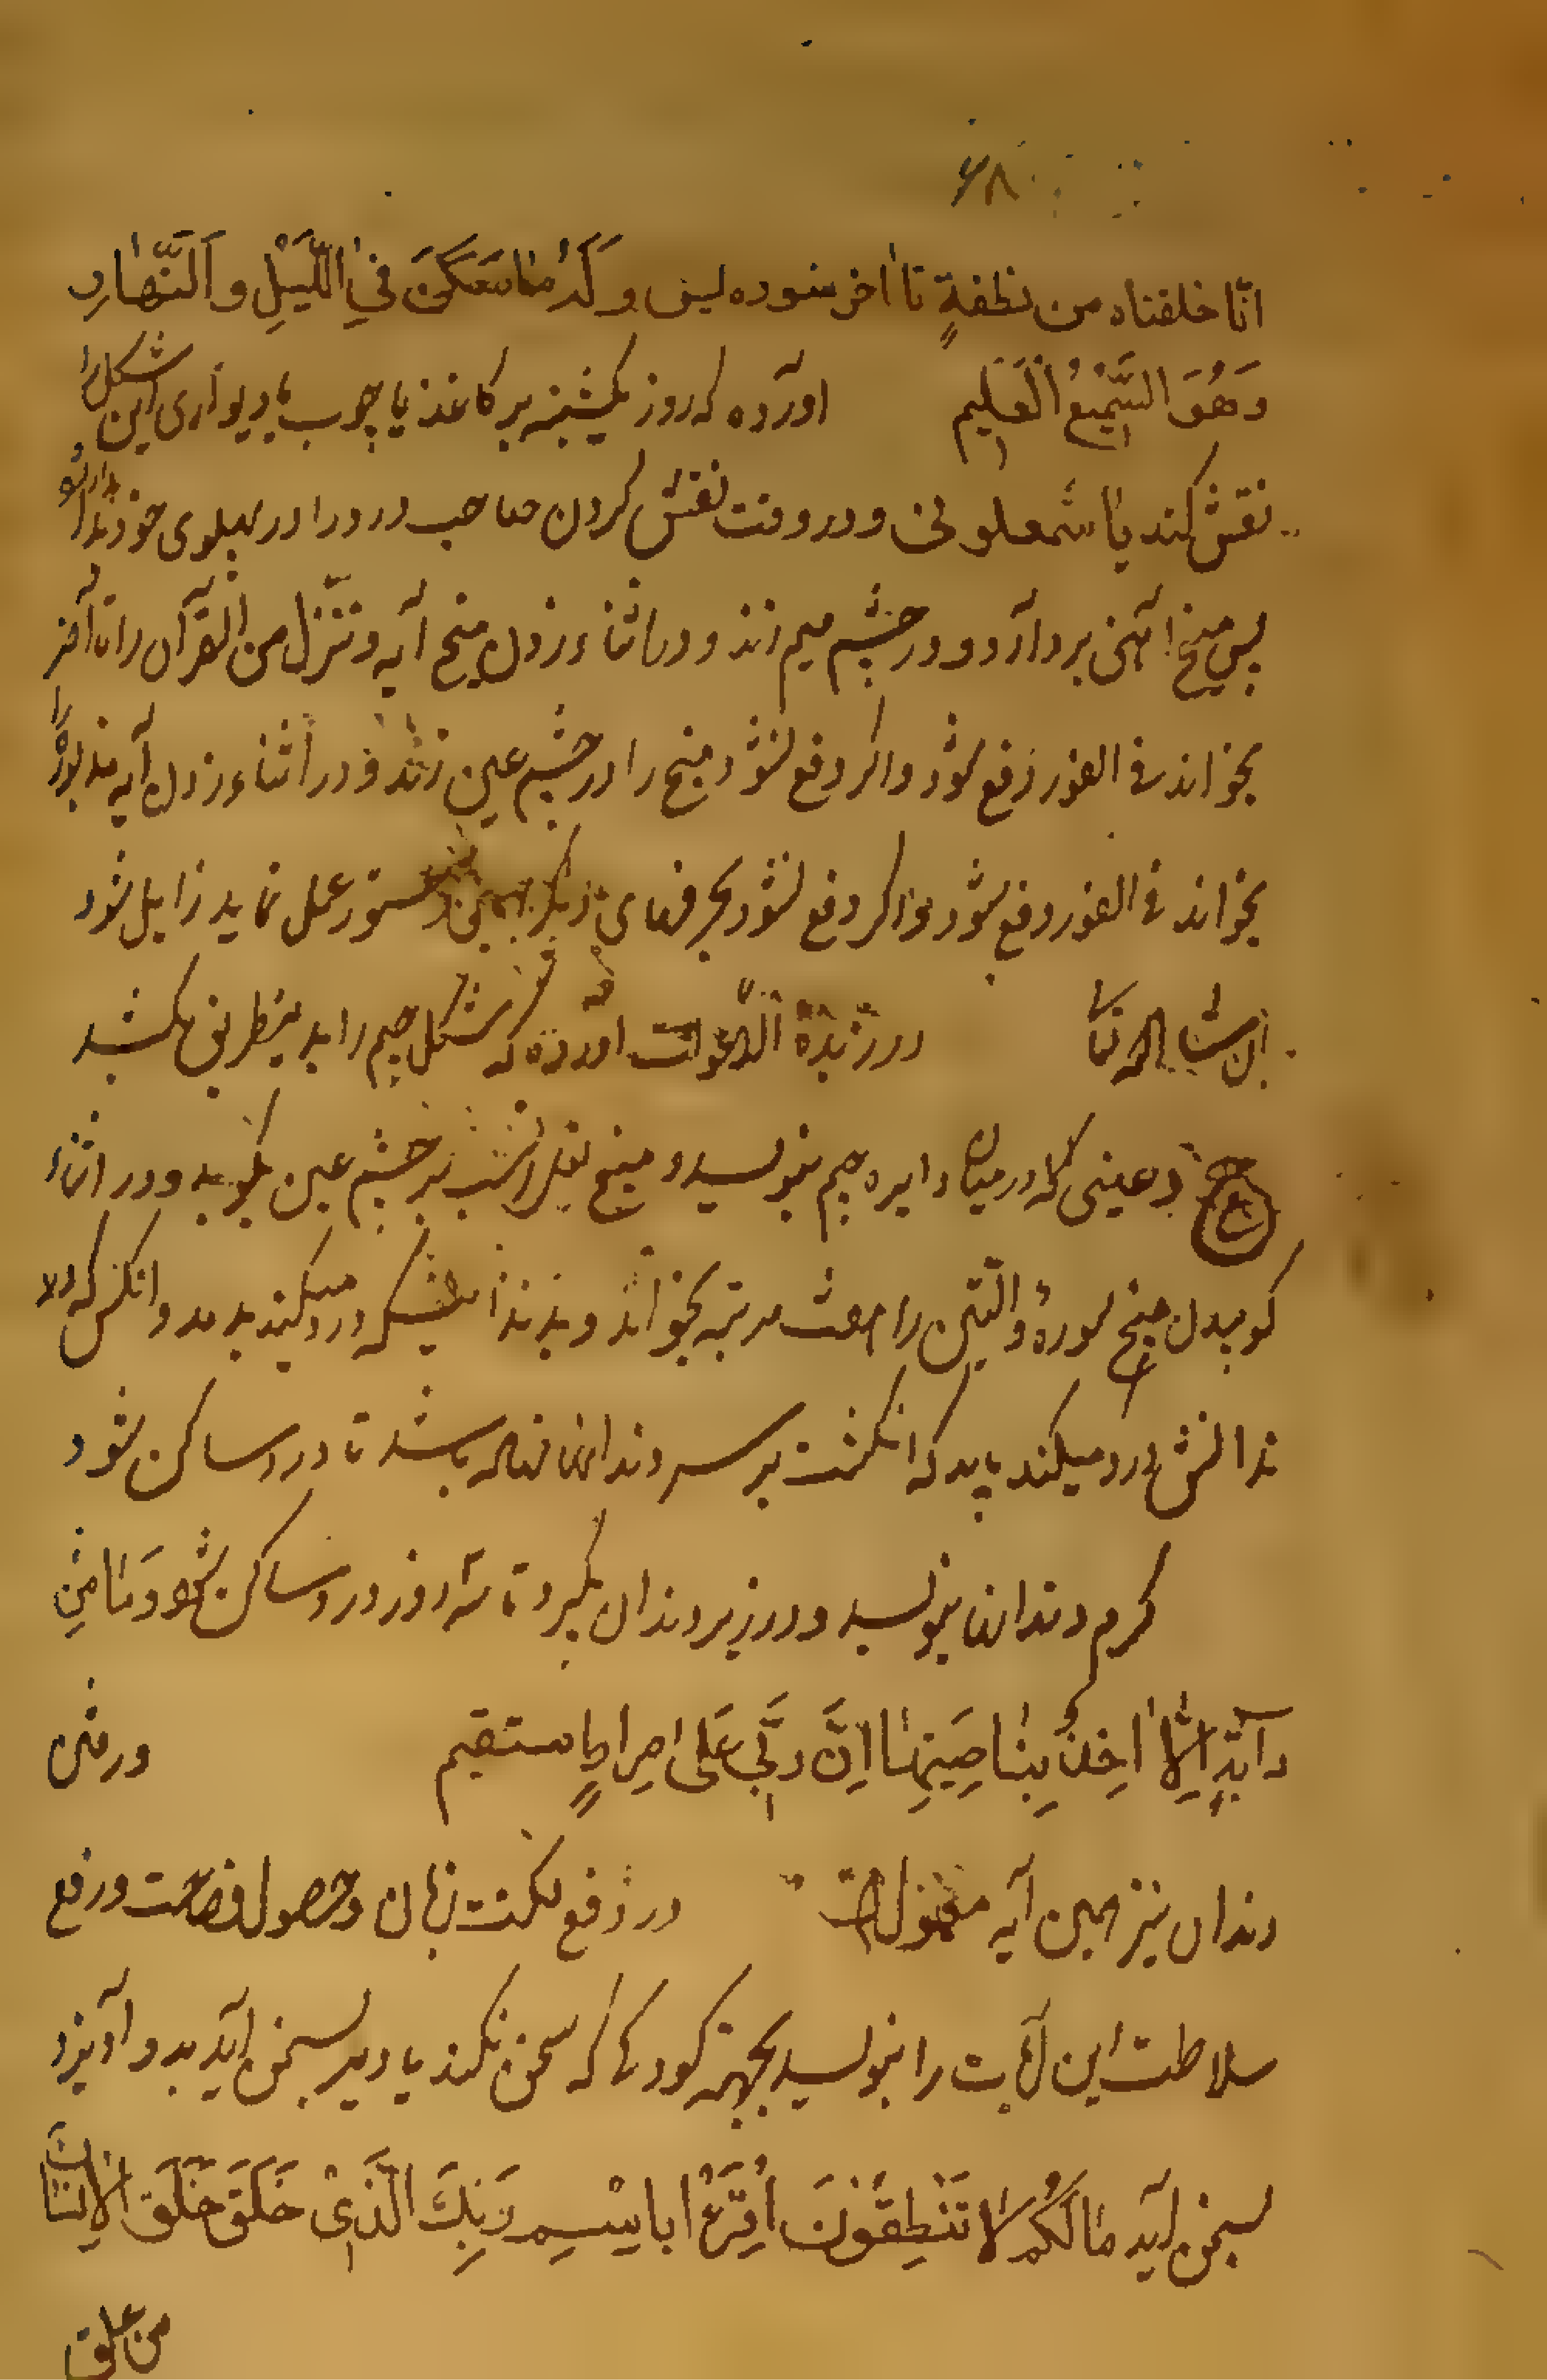 ۶۸
انّا خلقناه من نطفةٍ تا اخر سوره یس وَ لَهُ مٰا سَكَنَ فيِ اللَّيْلِ و اَلنَّهٰارِ
وَ هُوَ السَّمیْعُ الْعَلِیم اورده که روز یکشنبه بر کاغذ یا چوب یا دیواری این شکل را
نقش کند یا شمعلونی و در وقت نقش کردن صاحب درد را در پهلوی خود بدارد
پس میخ آهنی بردارد و در چشم میم زند و در اثناء زدن میخ آیه و ننزّل من القرآن را تا آخر
بخواند فی الفور دفع شود و اگر دفع نشود میخ را در چشم عین زند و در اثناء زدن آیه مذبور را
بخواند فی الفور دفع شود و اگر دفع نشود بحرفهای دیگر بهمین دستور عمل نماید زایل شود
ان شاء الله تعا در زُبْدَة الدّعوات اورده که شکل جیم را بدینطریق بکشد
ج ع و عینی که در میان دایره جیم بنویسد و میخ نعل اسب بر چشم عین بکوبد و در اثناء
کوبیدن میخ سورهٔ والتّین را هفت مرتبه بخواند و بدندانیکه درد میکند بدمد و انکس که
ندانش درد میکند باید که انکشت بر سر دندان نهاده باشد تا درد ساکن شود
کرم دندان بنویسد و در زیر دندان بگیرد تا سه روز درد ساکن شود وَ مٰا مِنْ
دٰآبَّةٍ اِلّٰا اٰخِذٌ بِنٰاصِیَتِهٰا اِنَّ رَبّی عَلی صِراطٍ مستقیم ورقش
دندان نیز همین آیه منقول است در دفع لکنت زبان و حصول فصاحت و رفع
سلاطت این آیات را بنویسد بجهة کودکی که سخن نکند یا دیر بسخن آید بدو آویزد
بسخن آید مٰا لَكُمْ لٰا تَنْطِقُوْنَ اِقْرَءْ بِاسْمِ رَبِّكَ الَّذیْ خَلَقَ خَلَقَ الْاِنْسٰانَ
من علق